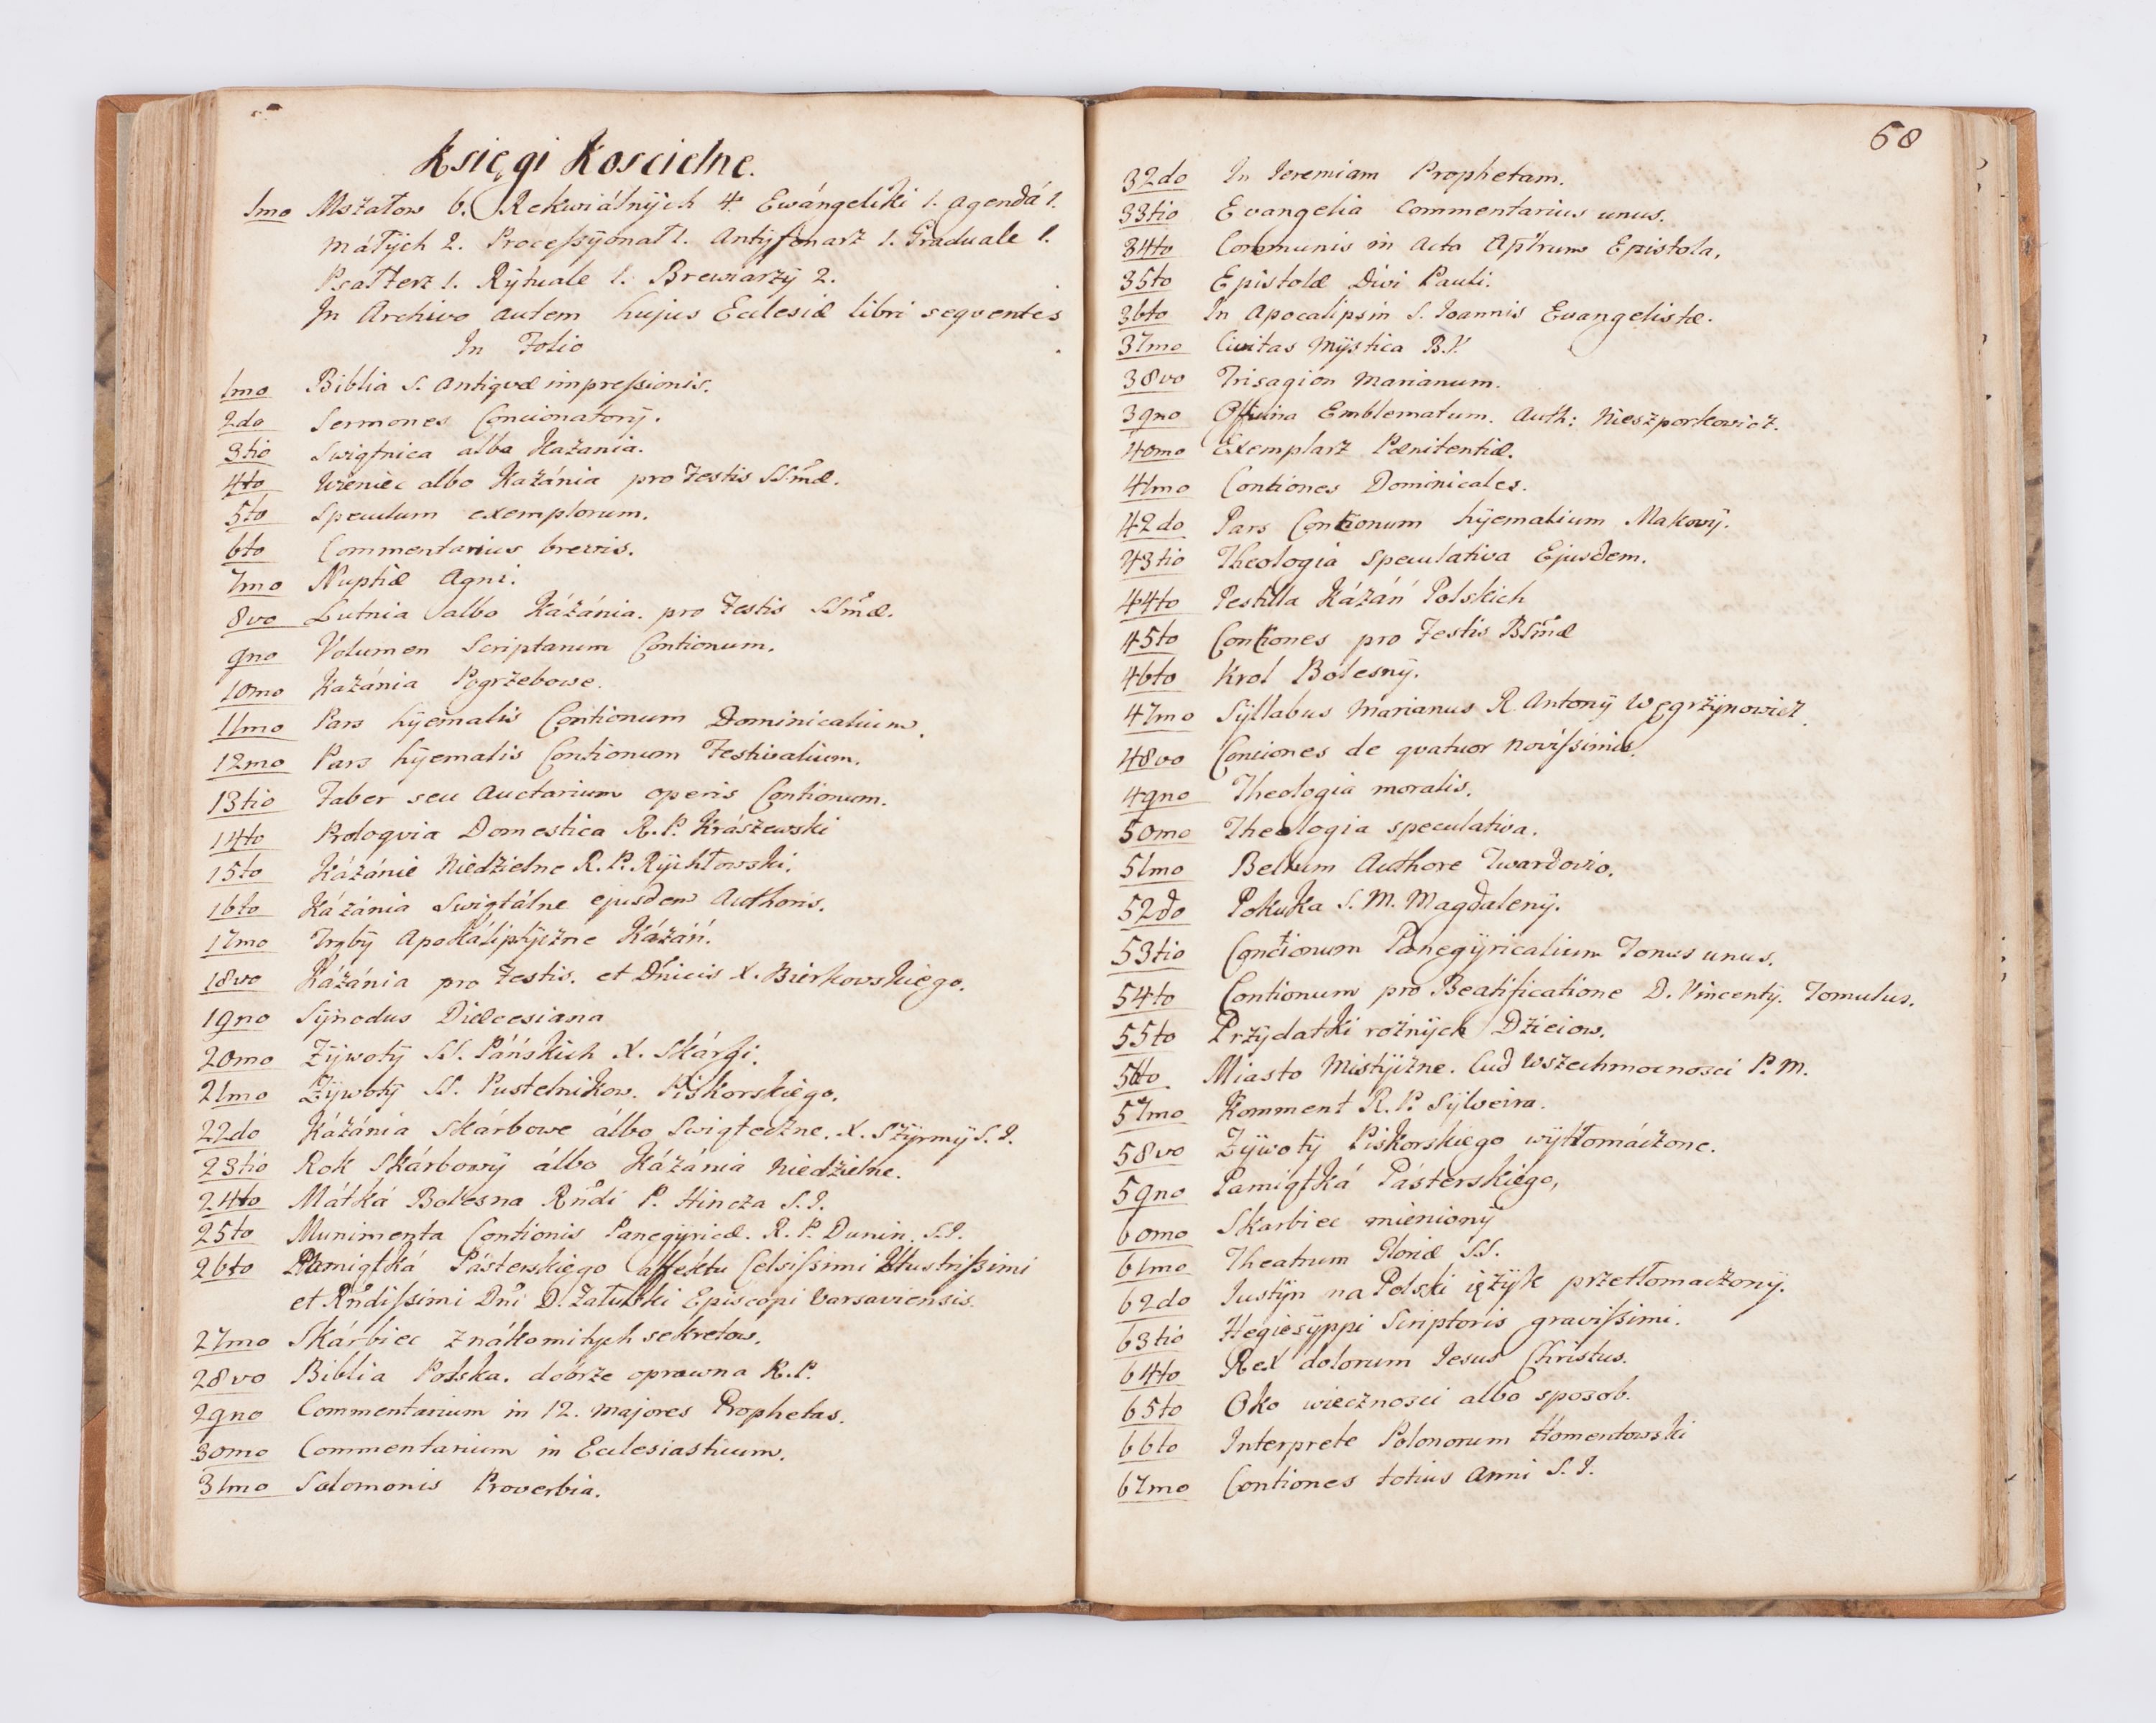 Księgi Koscielne.
1mo Mszałow 6. Rekwiálnÿch 4. Ewángeliki 1. Agendá 1.
máłÿch 2. Processÿonał 1. Antÿfonarz 1. Graduale 1.
Psałterz 1. Rÿtuale 1. Brewiarzÿ 2.
In Archivo autem hujus Ecclesiæ libri seqventes
In Folio
1mo Biblia S. Antiqvæ impressionis.
2do Sermones Concionatorÿ.
3tio Swiątnica albo Kazania.
4to Wieniec albo Kazánia pro Festis SSmæ.
5to Speculum exemplorum.
6to Commentarius brevis.
7mo Nuptiæ Agni.
8vo Lutnia albo Kázánia. pro Festis SSmæ.
9no Volumen Scriptarum Contionum.
10mo Kazánia Pogrzebowe.
11mo Pars hÿemalis Contionum Dominicalium.
12mo Pars hÿemalis Contionum Festivalium.
13tio Faber seu Auctarium operis Contionum.
14to Prologvia Domestica R.P. Krászewski
15to Kázánie Niedzielne R.P. Rÿchłowski.
16to Kázánia Swiątálne ejusdem Authoris.
17mo Trąbÿ Apokáliptÿczne Kázáń.
18vo Kázánia pro Festis. et Dnicis X. Bierkowskiego.
19no Sÿnodus Diæcesiana
20mo Zÿwotÿ SS. Páńskich X. Skárgi.
21mo Zÿwotÿ SS. Pustelnikow. Piskorskiego.
22do Kázánia Skárbowe álbo Swiąteczne. X. Szÿrmÿ S.I.
23tio Rok Skárbowÿ álbo Kázánia Niedzielne.
24to Mátká Bolesna Rndi P. Hincza S.I.
25to Munimenta Contionis Panegÿricæ. R.P. Dunin. S.I.
26to Pamiątká Pásterskiego affektu Celsissimi Illustrissimi
et Rndissimi Dni D. Załuski Episcopi Varsaviensis.
27mo Skárbiec znákomitych sekretow.
28vo Biblia Polska. dobrze oprawna R.P.
29no Commentarium in 12. majores Prophetas.
30mo Commentarium in Ecclesiasticum.
31mo Salomonis Proverbia.
68
32do In Ieremiam Prophetam.
33tio Evangelia Commentarius unus.
34to Communis in Acta Aptrum Epistola.
35to Epistolæ Divi Pauli.
36to In Apocalipsin S. Ioannis Evangelistæ.
37mo Civitas Mÿstica B.V.
38vo Trisagion Marianum.
39no Officina Emblematum. Auth: Nieszporkowicz.
40mo Exemplarz Pænitentiæ.
41mo Contiones Dominicales.
42do Pars Contionum hÿemalium Makowÿ.
43tio Theologia Speculativa Ejusdem.
44to Postilla Kázáń Polskich
45to Contiones pro Festis BSmæ
46to Krol Bolesnÿ.
47mo Sÿllabus Marianus R. Antonÿ Węgrzÿnowicz.
48vo Conciones de qvatuor novissimis.
49no Theologia moralis.
50mo Theologia speculativa.
51mo Bellum Authore Twardovio.
52do Pokuka S. M. Magdalenÿ.
53tio Contionum Panegÿricalium Tomus unus.
54to Contionum pro Beatificatione D. Vincentÿ. Tomulus.
55to Przÿdatki roznÿch Dzieiow.
56to Miasto Mistÿczne. Cud wszechmocnosci P.M.
57mo Komment R.P. Sÿlveira.
58vo Zÿwotÿ Piskorskiego wÿtłomáczone.
59no Pamiątká Pásterskiego,
60mo Skarbiec mienionÿ
61mo Theatrum Gloriæ SS.
62do Iustÿn na Polski ięzÿk przetłomaczonÿ.
63tio Hegiesÿppi Scriptoris gravissimi.
64to Rex dolorum Iesus Christus.
65to Oko wiecznosci albo sposob.
66to Interprete Polonorum Homentowski
67mo Contiones totius Anni S.I.